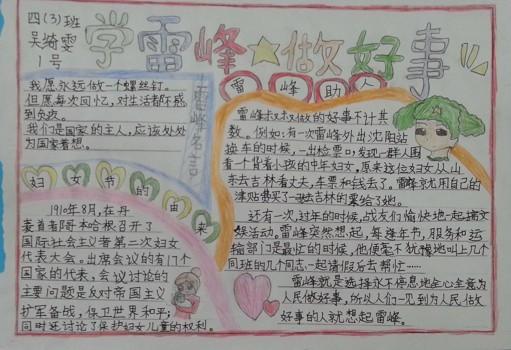 四(3)班
吴绮雯
1号
学雷峰☆做好事
我愿永远做一个螺丝钉。
但愿每次回忆,对生活都不感
到负疚。
我们是国家的主人,应该处处
为国家着想。
雷峰名言
雷峰助人
雷峰叔叔做的好事不计其
数。例如:有一次雷峰外出沈阳站
换车的时候,一出检票口,发现一群人围
看一个背着小孩的中年妇女,原来这位妇女从山
东去吉林看丈夫,车票和钱去了。雷峰就用自己的
津贴费买了一张去吉林的票给了她。
还有一次,过年的时候,战友们愉快地一起搞文
娱活动。雷峰突然想起,每逢年节,服务和运
输部门是最忙的时候,他便毫不犹豫地叫上几个
同班的几个同志,一起请假后去帮忙……
雷峰就是选择永不停息地全心全意为
人民做好事,所以人们一见到为人民做
好事的人就想起雷峰。
妇女节的由来
1910年8月,在丹
麦首者阿本哈根召开了
国际社会主义者第二次妇女
代表大会。出席会议的有17个
国家的代表,会议讨论的
主要问题是反对帝国主义
扩军备战,保卫世界和平;
同时还讨论了保护妇女儿童的权利。